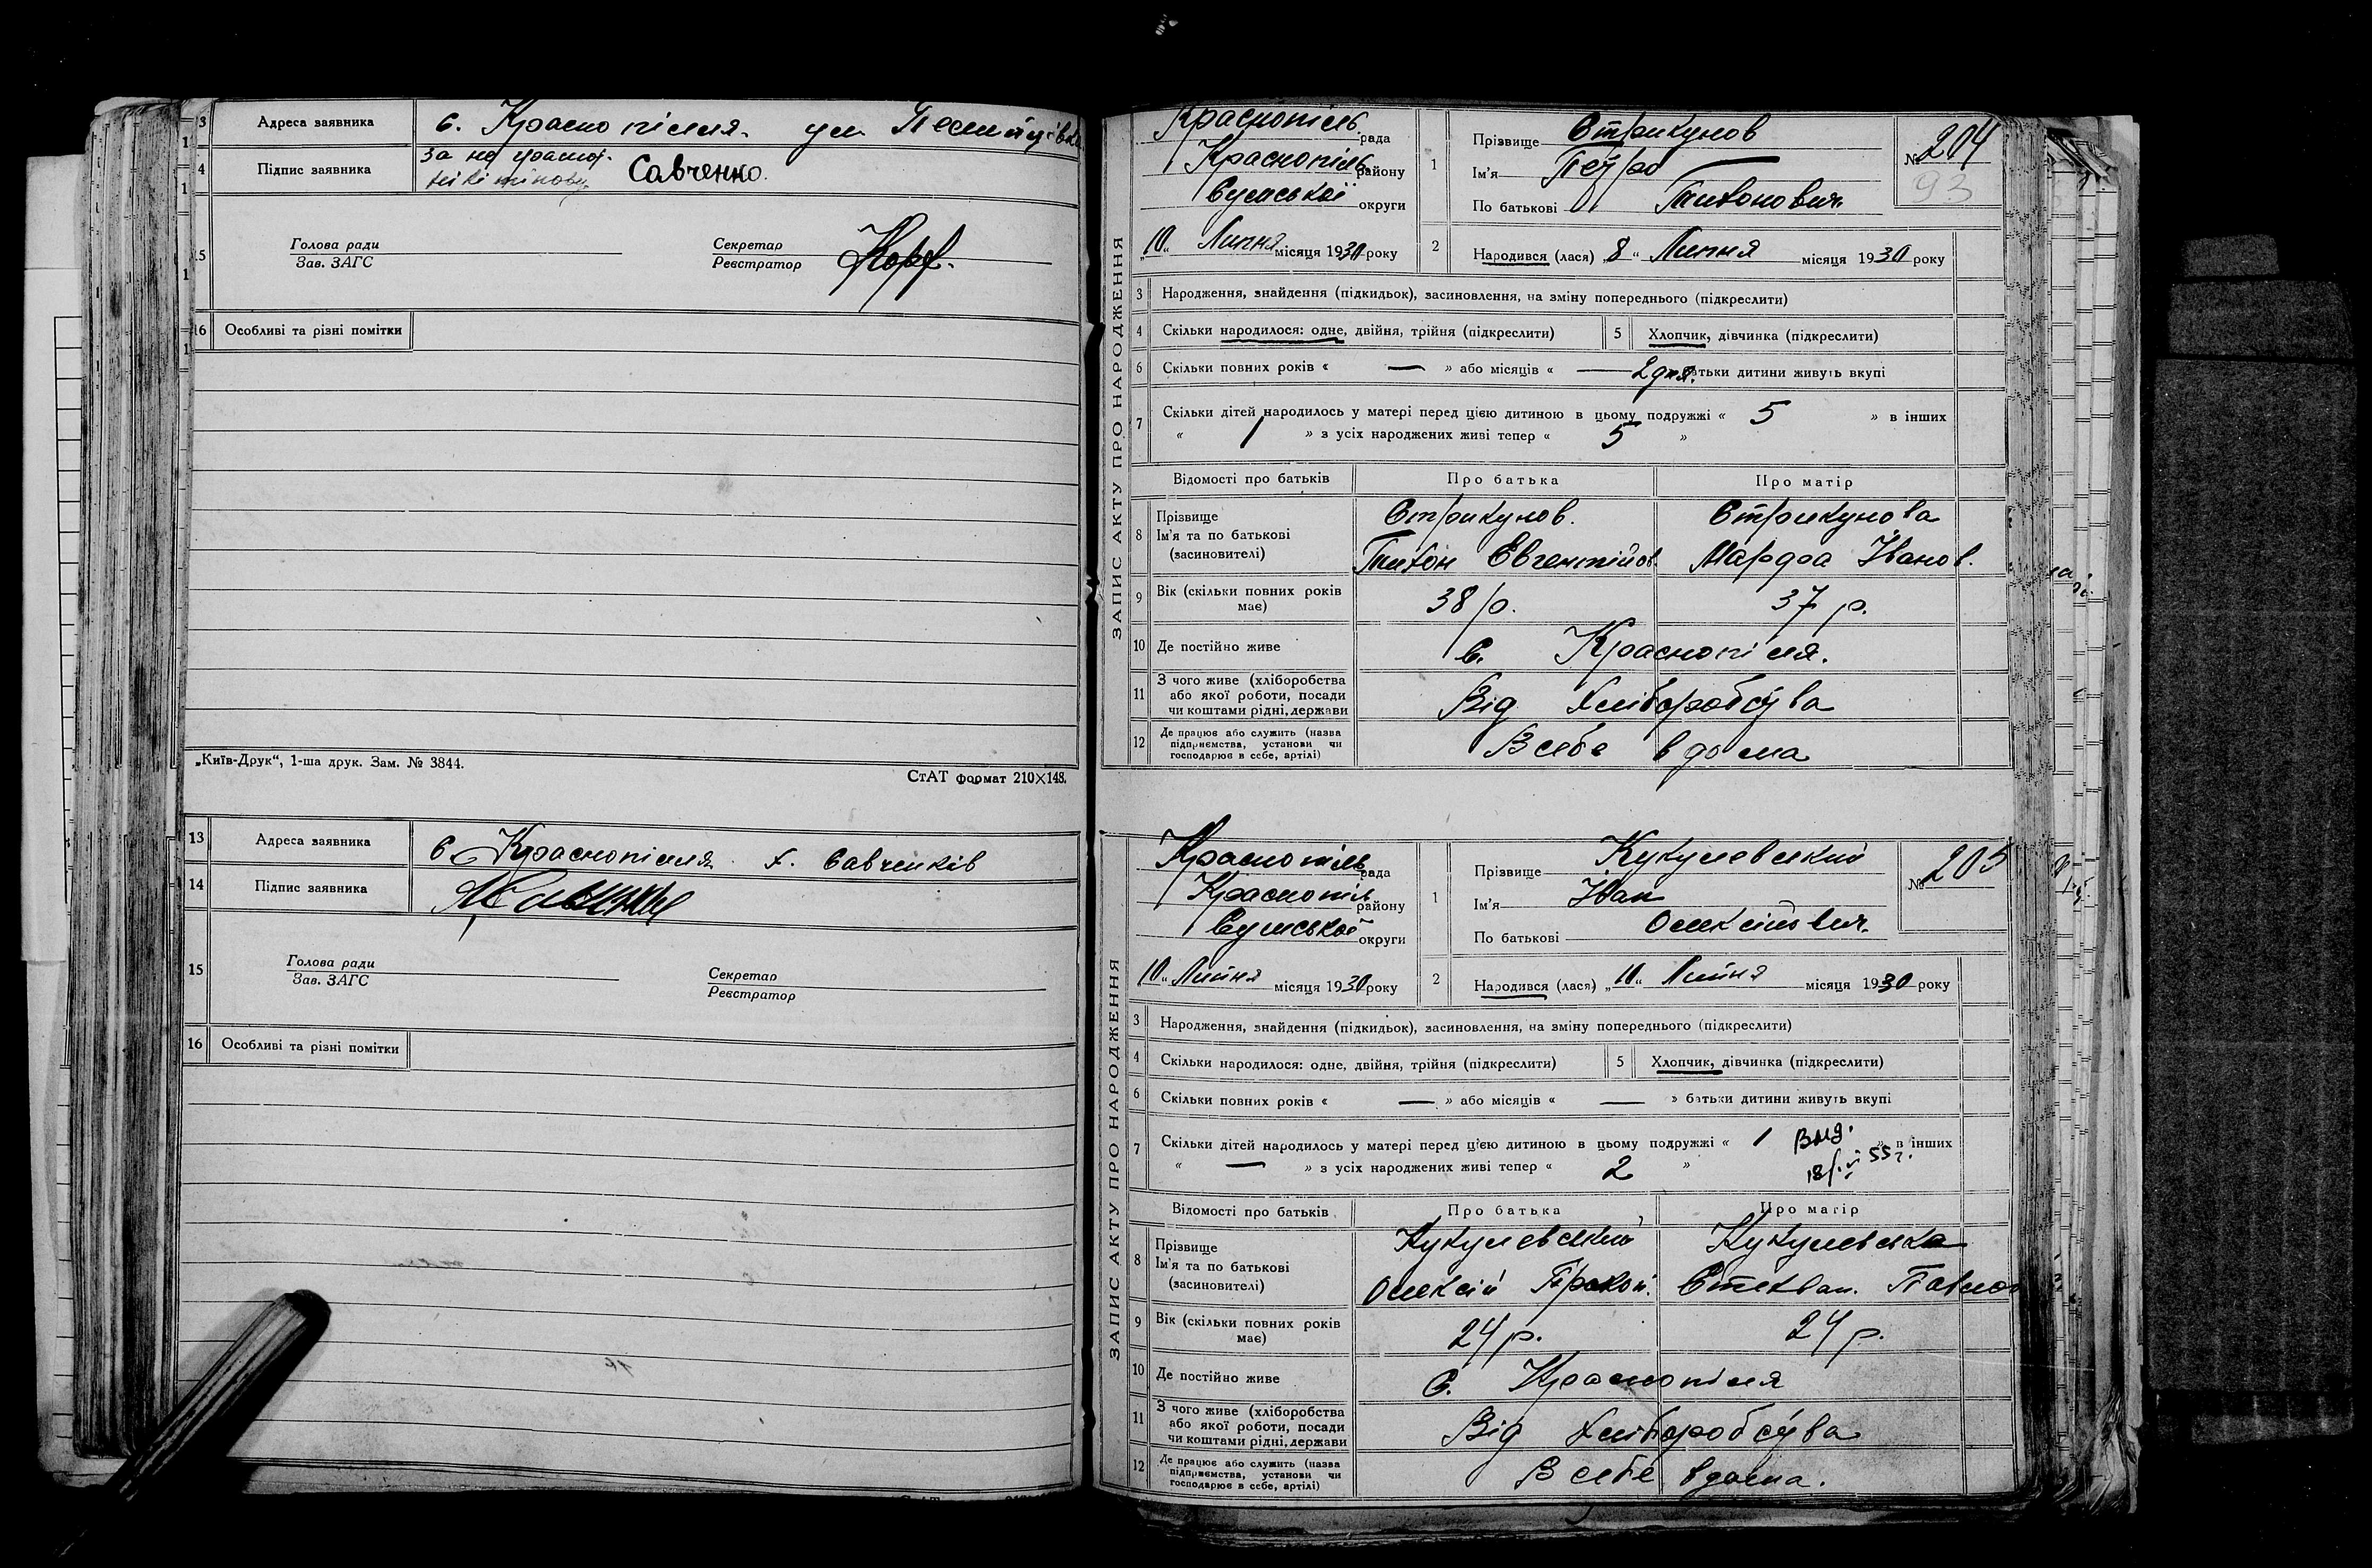 13 Адреса заявника с. Краснопілля. ул.
14 Підпис заявника за не грамот. Савченко.
15 Голова ради Секретар
Зав. ЗАГС Реєстратор
16 Особливі та різні помітки
„Київ-Друк“, 1-ша друк. Зам. № 3844.
СтАТ формат 210×148.
13 Адреса заявника с. Краснопілля х. Савченків
14 Підпис заявника
15 Голова ради Секретар
Зав. ЗАГС Реєстратор
16 Особливі та різні помітки
ЗАПИС АКТУ ПРО НАРОДЖЕННЯ
Краснопіль рада
Краснопіль району
Сумської округи
„10“ Липня місяця 1930 року
1 Прізвище Стрикунов
Ім'я Петро
По батькові Тихонович
№ 204
93
2 Народився (лася) „8“ Липня місяця 1930 року
3 Народження, знайдення (підкидьок), засиновлення, на зміну попереднього (підкреслити)
4 Скільки народилося: одне, двійня, трійня (підкреслити) 5 Хлопчик, дівчинка (підкреслити)
6 Скільки повних років « — » або місяців « — 2 дня. батьки дитини живуть вкупі
7 Скільки дітей народилось у матері перед цією дитиною в цьому подружжі « 5 » в інших
« 1 » з усіх народжених живі тепер « 5 »
Відомості про батьків Про батька Про матір
8 Прізвище Стрикунов. Стрикунова
Ім'я та по батькові Тихон Евгентійов. Марфа Іванов.
(засиновителі)
9 Вік (скільки повних років має) 38 р. 37 р.
10 Де постійно живе с. Краснопілля.
11 З чого живе (хліборобства Від хліборобства
або якої роботи, посади
чи коштами рідні, держави
12 Де працює або служить (назва В себе вдома
підприємства, установи чи
господарює в себе, артілі)
ЗАПИС АКТУ ПРО НАРОДЖЕННЯ
Краснопіль рада
Краснопіль району
Сумської округи
„10“ Липня місяця 1930 року
1 Прізвище Кукулевський
Ім'я Іван
По батькові Олексійович.
№ 205
2 Народився (лася) „10“ Липня місяця 1930 року
3 Народження, знайдення (підкидьок), засиновлення, на зміну попереднього (підкреслити)
4 Скільки народилося: одне, двійня, трійня (підкреслити) 5 Хлопчик, дівчинка (підкреслити)
6 Скільки повних років « — » або місяців « — » батьки дитини живуть вкупі
7 Скільки дітей народилось у матері перед цією дитиною в цьому подружжі « 1 » в інших
« — » з усіх народжених живі тепер « 2 »
Выд.
55 г.
Відомості про батьків Про батька Про матір
8 Прізвище Кукулевський Кукулевська
Ім'я та по батькові Олексій Прокоп. Степан. Павлов
(засиновителі)
9 Вік (скільки повних років має) 24 р. 24 р.
10 Де постійно живе С. Краснопілля
11 З чого живе (хліборобства Від хліборобства
або якої роботи, посади
чи коштами рідні, держави
12 Де працює або служить (назва В себе вдома.
підприємства, установи чи
господарює в себе, артілі)